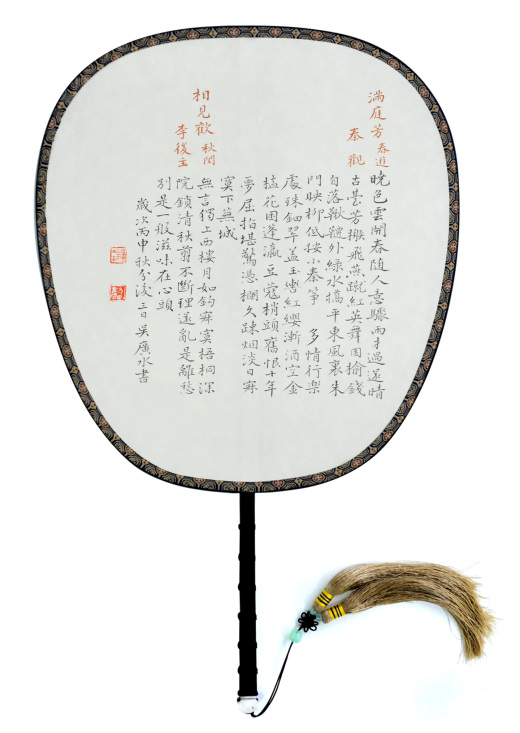 滿庭芳 春遊
秦觀
曉色雲開春隨人意驟雨才過還情
古臺芳榭飛燕蹴紅英舞困榆錢
自落鞦韆外綠水橋平東風裏朱
門映柳低按小秦箏 多情行樂
處珠鈿翠蓋玉轡紅纓漸酒空金
榼花困蓬瀛豆蔻梢頭舊恨十年
夢屈指堪驚憑欄久疎烟淡日寂
寞下蕪城
相見歡 秋閨
李後主
無言獨上西樓月如鈎寂寞梧桐深
院鎖清秋剪不斷理還亂是離愁
別是一般滋味在心頭
歲次丙申秋分後三日吳廣水書